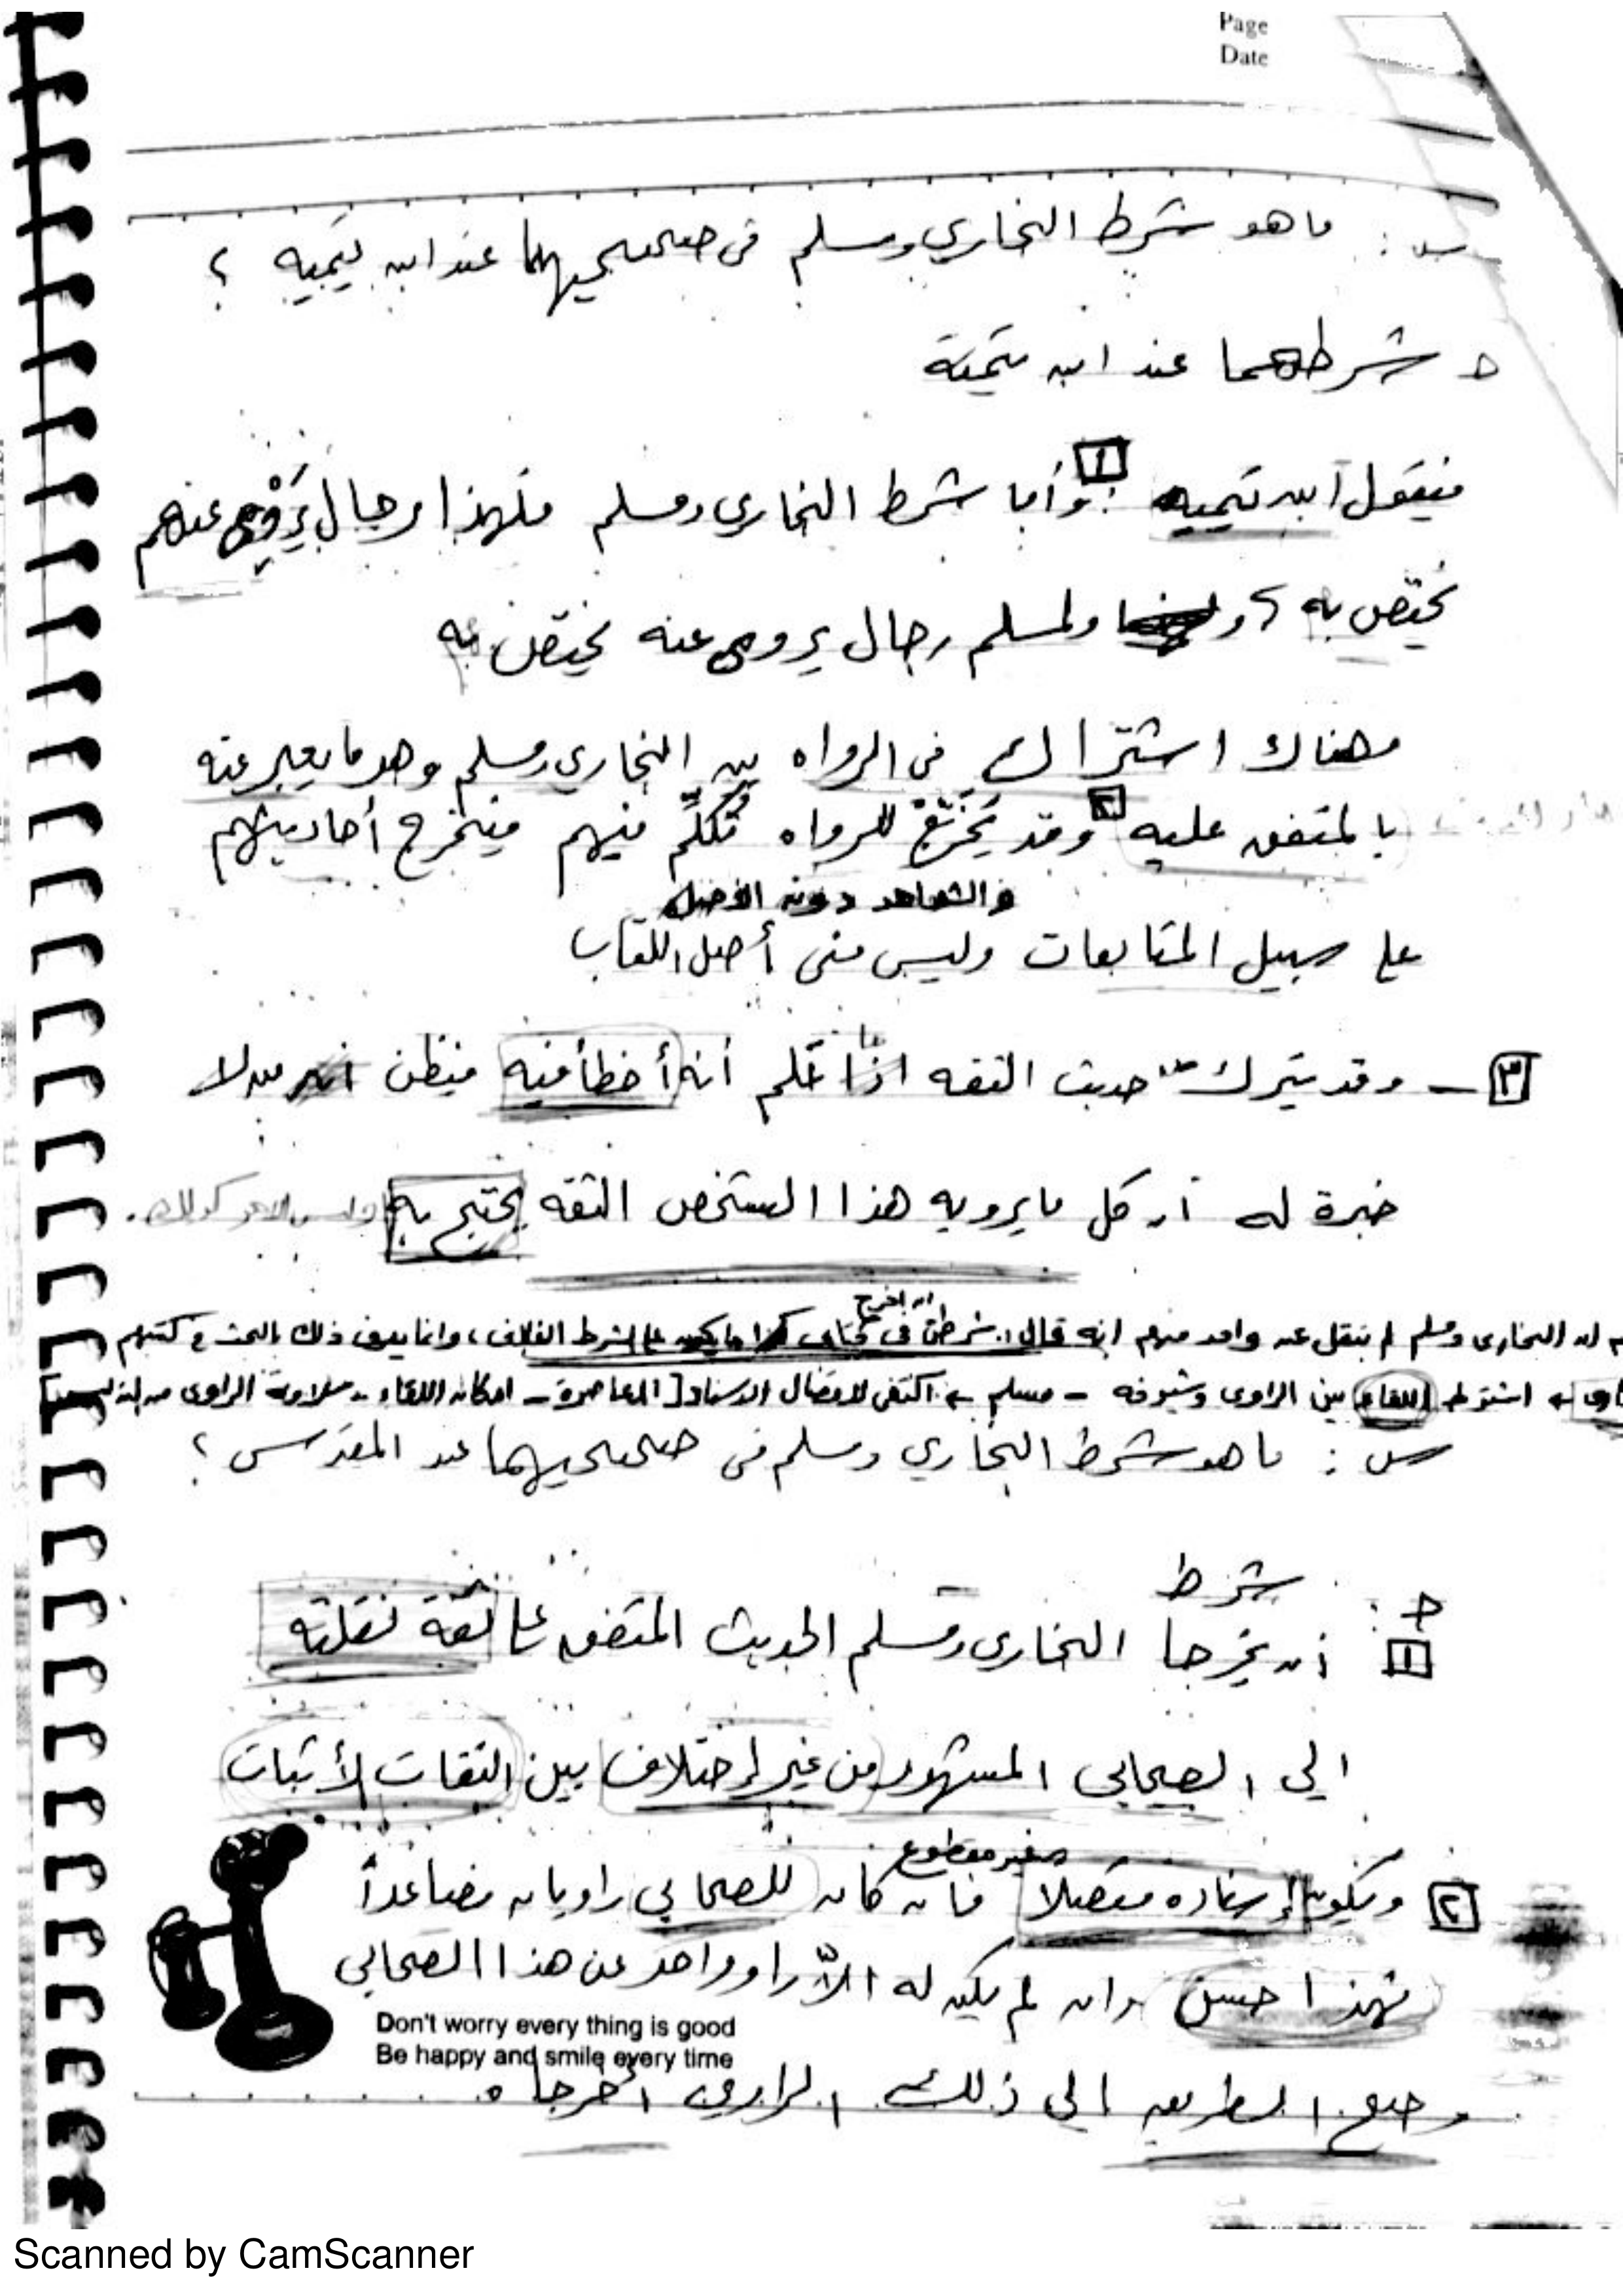 Page
Date
س : ما هو شرط البخاري ومسلم فى صحيحيهما عند ابن تيميه ؟
ج شرطهما عند ابن تيمية
فيقول ابن تيميه [1] : وأما شرط البخارى ومسلم فلهذا رجال يروى عنهم
يختص به ولمسلم رجال يروى عنه يختص به
وهناك اشتراك فى الرواه بين البخارى ومسلم وهو ما يعبر عنه
بالمتفق عليه [٢] وقد يخرج للرواه تكلم فيهم فيخرج أحاديثهم
والشواهد دون الاصل
على سبيل المتابعات وليس فى أصل الكتاب
[٣] - وقد يترك من حديث الثقه اذا ما علم أنه أخطأ فيه فيظن من لا
خبرة له أن كل ما يرويه هذا الشخص الثقه يحتج به وليس الامر كذلك.
ان اخرج
ان البخارى ومسلم لم ينقل عن واحد منهم انه قال : شرطى فى كتابى ما يكون على الشرط الفلانى ، وانما يعرف ذلك بالبحث فى كتبهم
اشترط اللقاء بين الراوى وشيوخه - مسلم ← اكتفى لاتصال الاسناد [ المعاصرة - امكان اللقاء - سلامة الراوى من التدليس]
س : ما هو شرط البخاري ومسلم فى صحيحيهما عند المقدسى ؟
ج : شرط
[١] أن يخرجا البخارى ومسلم الحديث المتفق على ثقة نقلته
الى الصحابى المشهور من غير إختلاف بين الثقات الأثبات
غير مقطوع
[٢] ويكون إسناده متصلا فان كان للصحابي راويان فصاعداً
فهذا حسن وان لم يكن له الاّ راو واحد عن هذا الصحابى
Don't worry every thing is good
Be happy and smile every time
وصح الطريق الى ذلك الراوى أخرجاه
Scanned by CamScanner